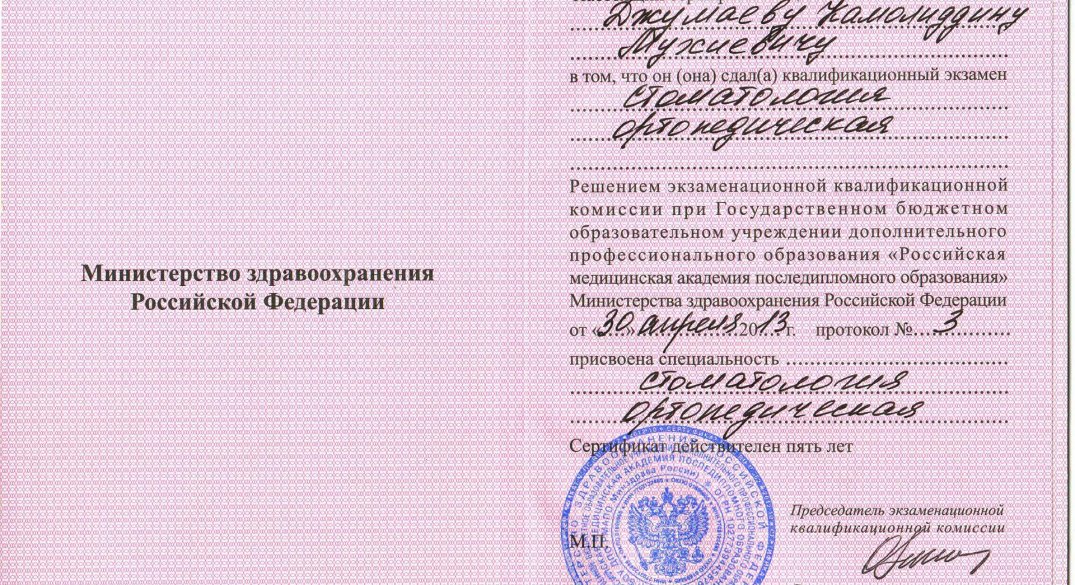 Министерство здравоохранения
Российской Федерации
Джумаеву Камолиддину
Мухиевичу
в том, что он (она) сдал(а) квалификационный экзамен
стоматология
ортопедическая
Решением экзаменационной квалификационной
комиссии при Государственном бюджетном
образовательном учреждении дополнительного
профессионального образования «Российская
медицинская академия последипломного образования»
Министерства здравоохранения Российской Федерации
от «30» апреля 2013 г. протокол № 3
присвоена специальность
стоматология
ортопедическая
Сертификат действителен пять лет
М.П.
Председатель экзаменационной
квалификационной комиссии